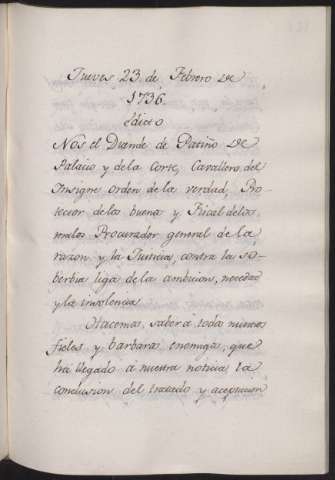 Jueves 23 de Febrero de
1736.
Edicto
Nos el Duende de Patiño de
Palacio y de la Corte, Cavallero del
Insigne orden de la verdad, Pro-
tector de los buenos y Fiscal de los
malos Procurador general de la
razon y la Justicia, contra la so-
berbia liga de la ambicion, necedad
y la insolencia
Hacemos saber a todos nuestros
fieles y barbaros enemigos, que
ha llegado a nuestra noticia la
conclusion del tratado y aceptacion